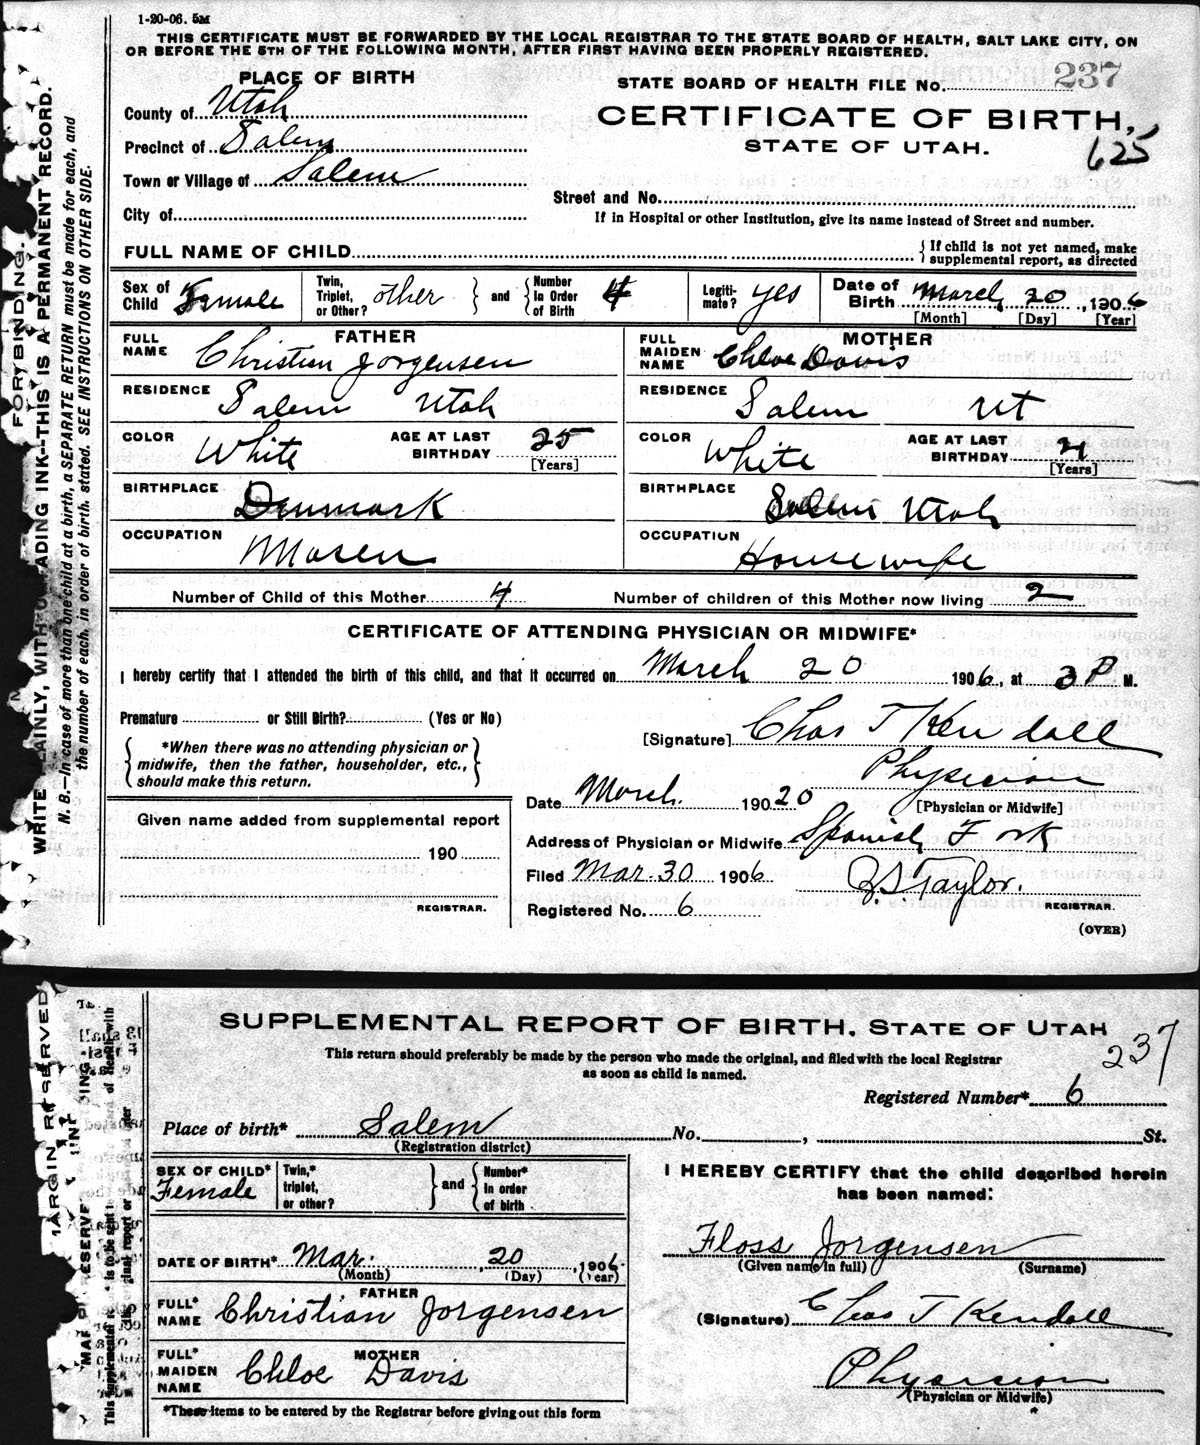 1-20-06. 5M
THIS CERTIFICATE MUST BE FORWARDED BY THE LOCAL REGISTRAR TO THE STATE BOARD OF HEALTH, SALT LAKE CITY, ON
OR BEFORE THE 5TH OF THE FOLLOWING MONTH, AFTER FIRST HAVING BEEN PROPERLY REGISTERED.
PLACE OF BIRTH
STATE BOARD OF HEALTH FILE No. 237
County of Utah
CERTIFICATE OF BIRTH,
Precinct of Salem
STATE OF UTAH.
625
Town or Village of Salem
Street and No.
City of
If in Hospital or other Institution, give its name instead of Street and number.
FULL NAME OF CHILD
{ If child is not yet named, make
supplemental report, as directed
Sex of Child Female
Twin, Triplet, or Other? other } and { Number In Order of Birth 4
Legiti-mate? yes
Date of Birth March 20, 1906
[Month] [Day] [Year]
FATHER
FULL NAME Christian Jorgensen
RESIDENCE Salem Utah
COLOR White AGE AT LAST BIRTHDAY 25 [Years]
BIRTHPLACE Denmark
OCCUPATION Mason
MOTHER
FULL MAIDEN NAME Chloe Davis
RESIDENCE Salem UT
COLOR White AGE AT LAST BIRTHDAY 21 [Years]
BIRTHPLACE Salem Utah
OCCUPATION Housewife
Number of Child of this Mother 4 Number of children of this Mother now living 2
CERTIFICATE OF ATTENDING PHYSICIAN OR MIDWIFE*
I hereby certify that I attended the birth of this child, and that it occurred on March 20 1906, at 3 P M.
Premature or Still Birth? (Yes or No)
{ *When there was no attending physician or
midwife, then the father, householder, etc.,
should make this return. }
[Signature] Chas T Kendall
Physician
[Physician or Midwife]
Date March 190 20
Address of Physician or Midwife Spanish Fork
Filed Mar. 30 1906
Z.S. Taylor.
REGISTRAR.
Registered No. 6
(OVER)
Given name added from supplemental report
190
REGISTRAR.
FOR BINDING.
WRITE PLAINLY, WITH UNFADING INK--THIS IS A PERMANENT RECORD.
N. B.—In case of more than one child at a birth, a SEPARATE RETURN must be made for each, and
the number of each, in order of birth, stated. SEE INSTRUCTIONS ON OTHER SIDE.
SUPPLEMENTAL REPORT OF BIRTH, STATE OF UTAH
This return should preferably be made by the person who made the original, and filed with the local Registrar
as soon as child is named.
237
Registered Number* 6
Place of birth* Salem No. , St.
(Registration district)
SEX OF CHILD* Female
Twin,* triplet, or other? } and { Number* in order of birth
DATE OF BIRTH* Mar. 20, 1906
(Month) (Day) (Year)
FATHER
FULL* NAME Christian Jorgensen
MOTHER
FULL* MAIDEN NAME Chloe Davis
*These items to be entered by the Registrar before giving out this form
I HEREBY CERTIFY that the child described herein
has been named:
Floss Jorgensen
(Given name in full) (Surname)
(Signature) Chas T Kendall
Physician
(Physician or Midwife)
MARGIN RESERVED